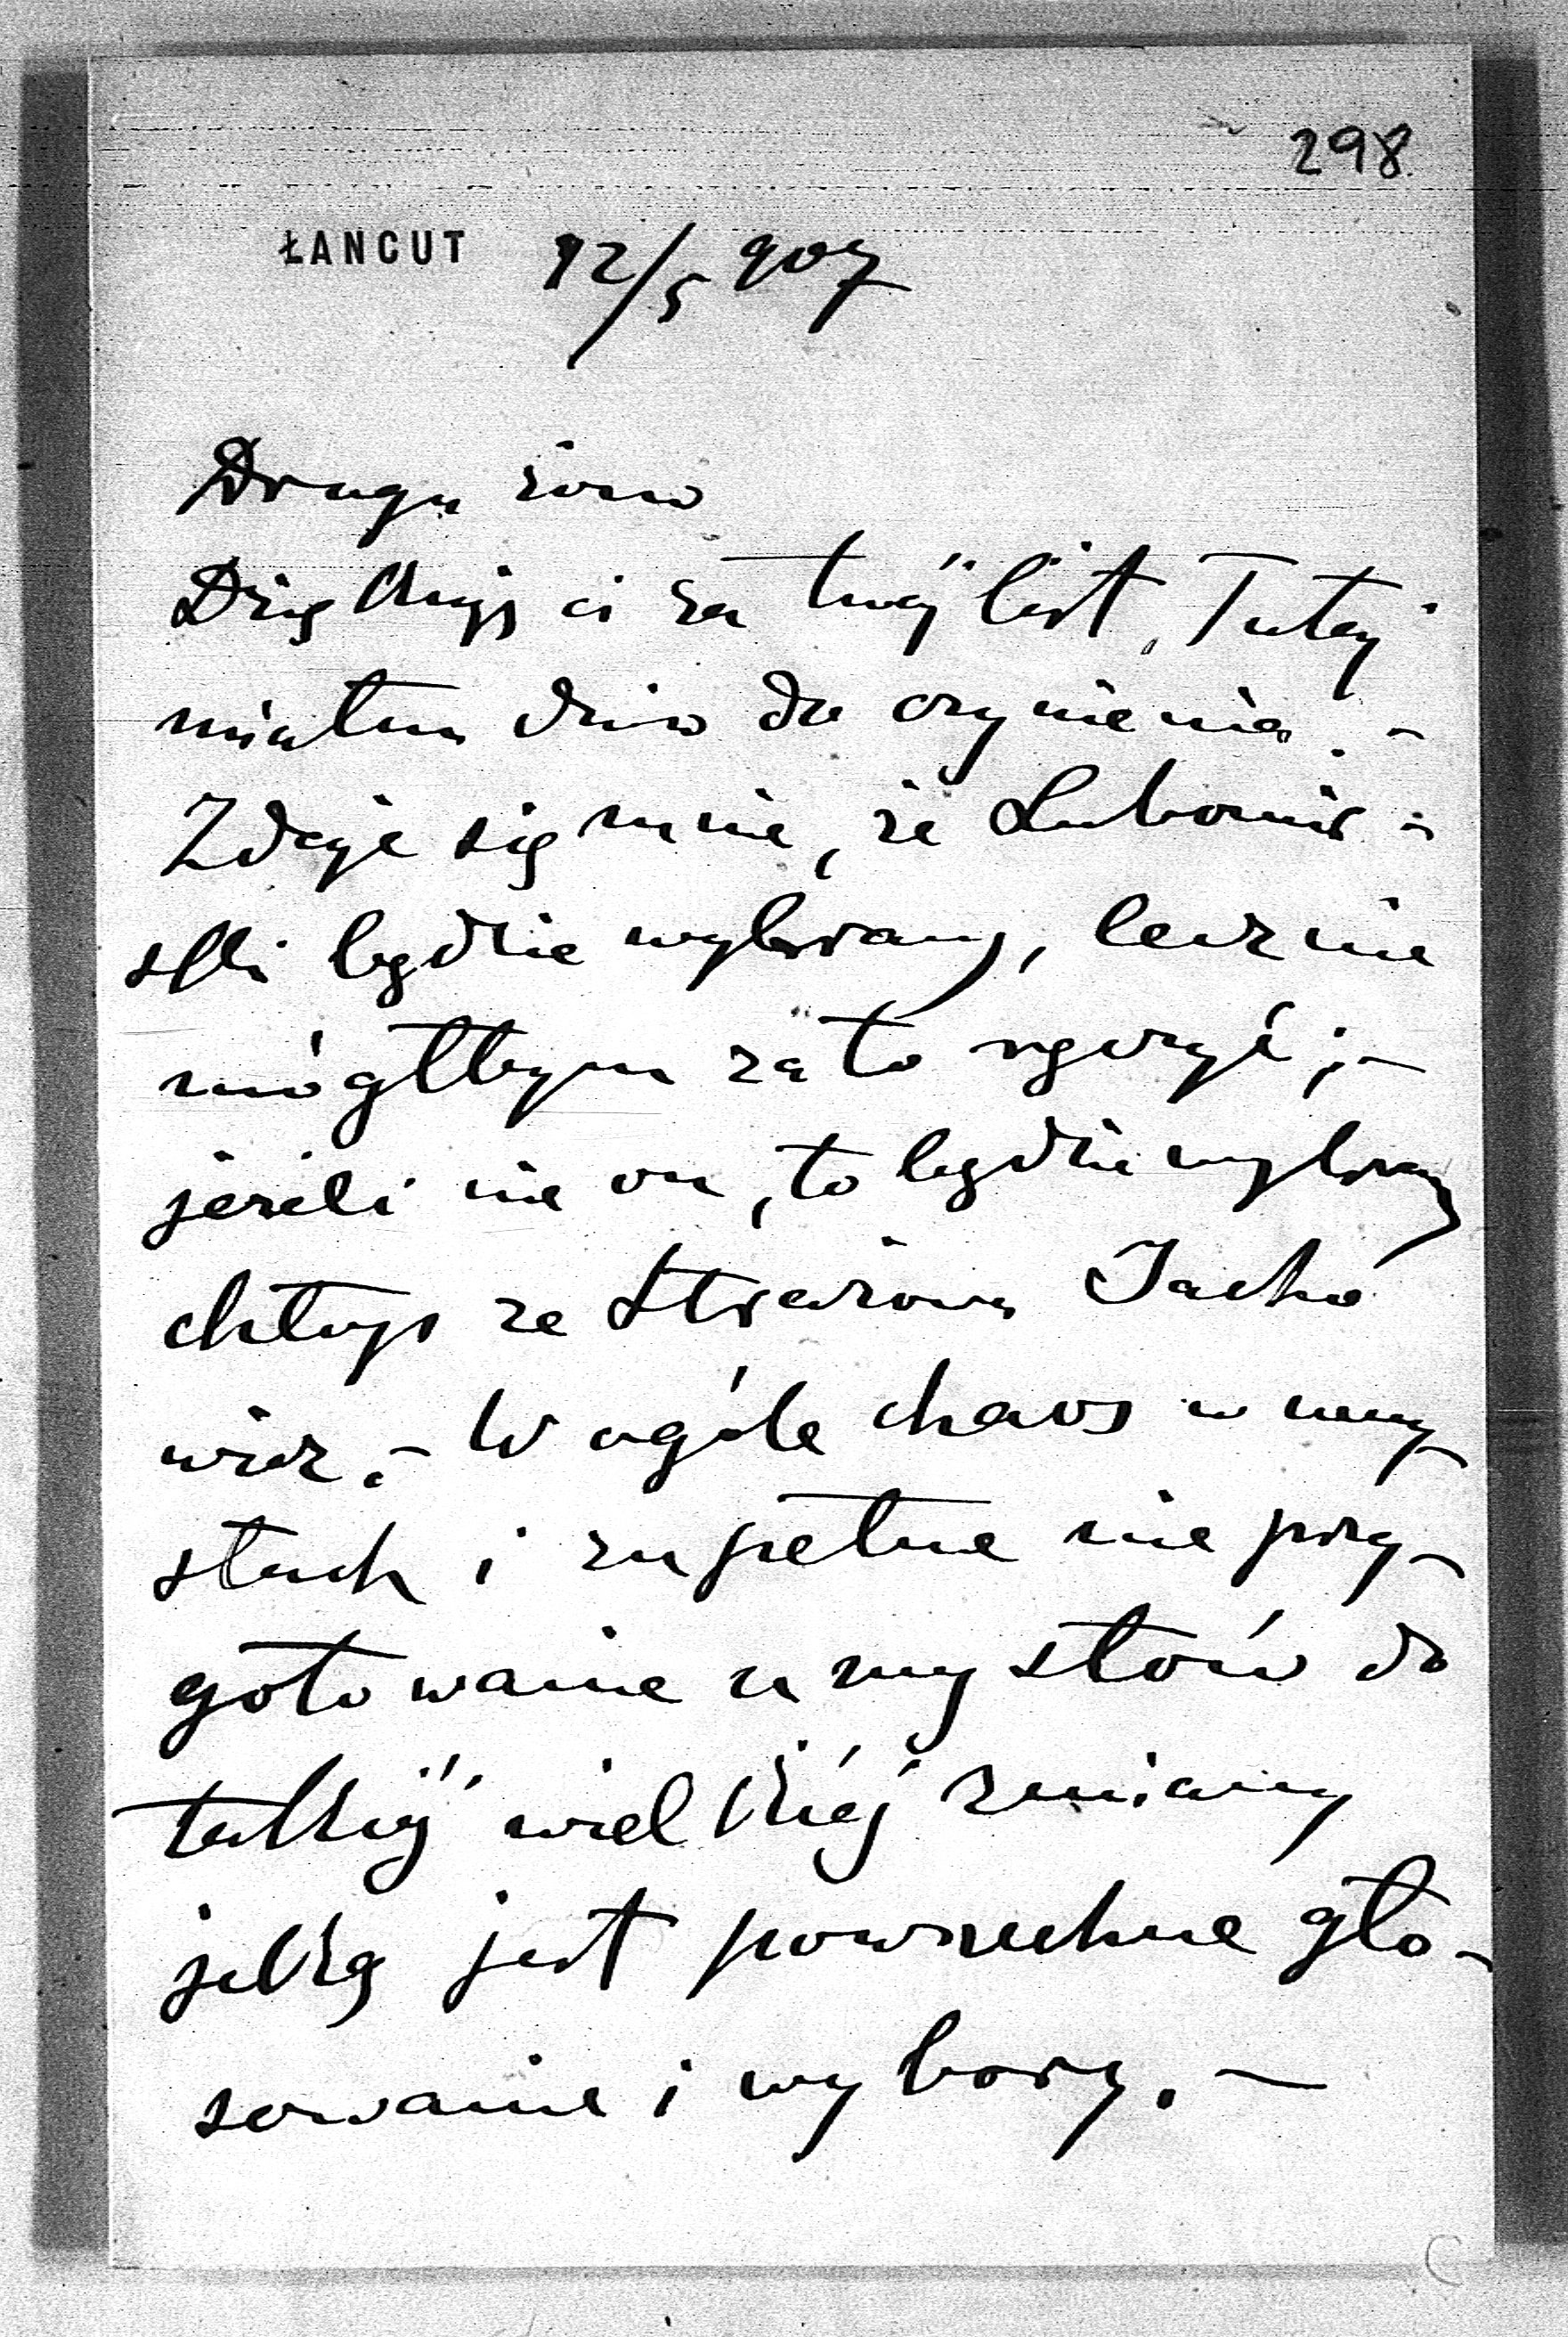 298
ŁANCUT 12/5 907
Droga żono
Dziękuję ci za twój list, Tutaj
miałem dziś do czynienia. -
Zdaje się mnie, że Lubomir-
ski będzie wybrany, lecz nie
mógłbym za to ręczyć; -
jeżeli nie on, to będzie wybrany
chłop ze Strażowa Jachó
wicz. - W ogóle chaos w umy-
słach i zupełne nie przy-
gotowanie umysłów do
takiéj wielkiéj zmiany
jaką jest powszechne gło-
sowanie i wybory. -